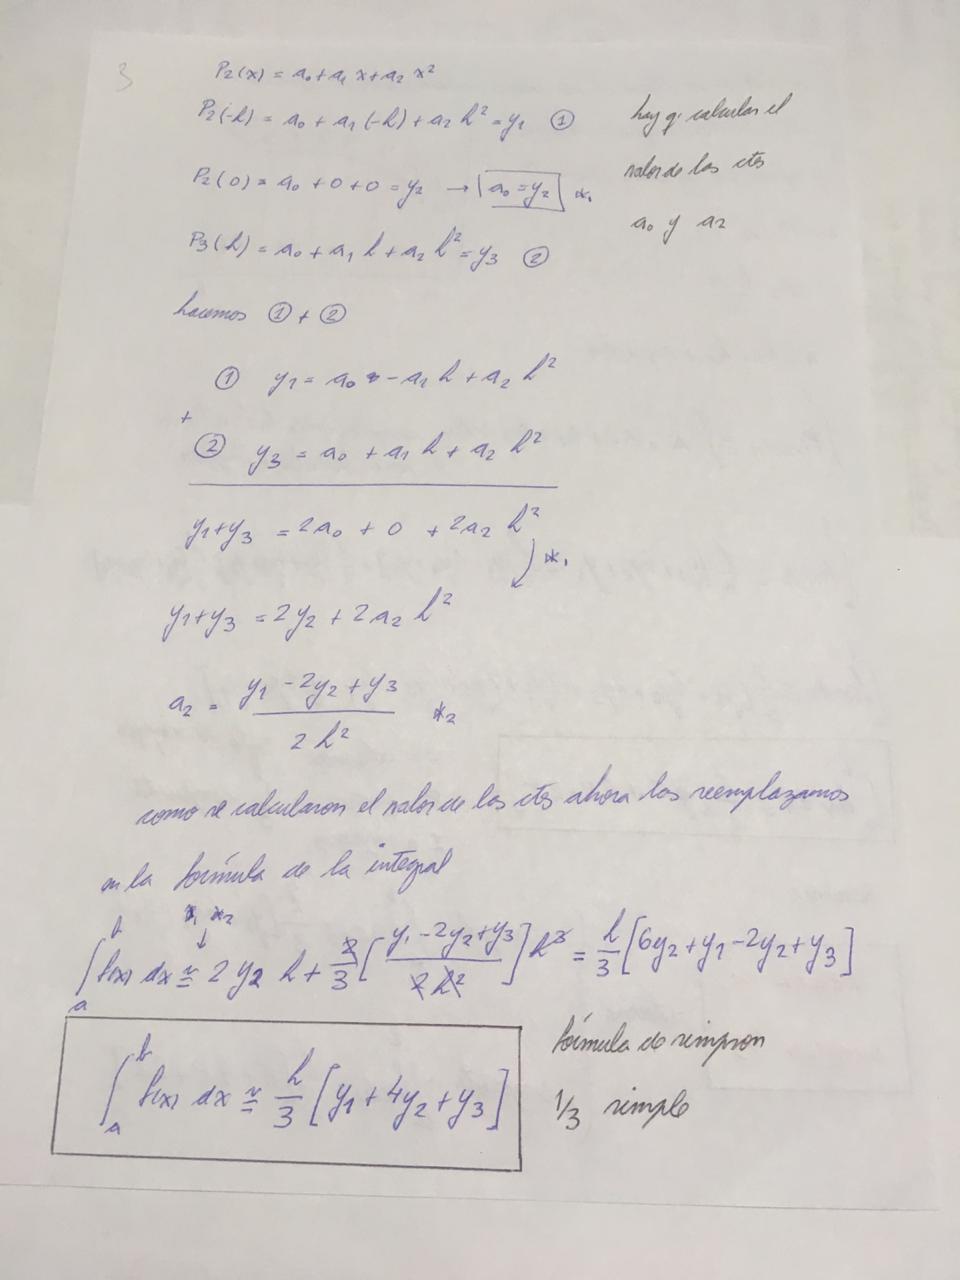 3
P₂(x) = a₀ + a₁ x + a₂ x²
P₂(-h) = a₀ + a₁ (-h) + a₂ h² = y₁ ①
hay q. calcular el
valor de las ctes
a₀ y a₂
P₂(0) = a₀ + 0 + 0 = y₂ → a₀ = y₂ *₁
P₃(h) = a₀ + a₁ h + a₂ h² = y₃ ②
hacemos ① + ②
① y₁ = a₀ - a₁ h + a₂ h²
+
② y₃ = a₀ + a₁ h + a₂ h²
y₁+y₃ = 2a₀ + 0 + 2a₂ h²
*₁
y₁+y₃ = 2y₂ + 2a₂ h²
a₂ = (y₁ - 2y₂ + y₃) / (2h²) *₂
como se calcularon el valor de las ctes ahora las reemplazamos
en la fórmula de la integral
*₁ *₂
∫ₐᵇ f(x) dx ≅ 2 y₂ h + 2/3 [(y₁ - 2y₂ + y₃) / (2h²)] h³ = h/3 [6y₂ + y₁ - 2y₂ + y₃]
∫ₐᵇ f(x) dx ≅ h/3 [y₁ + 4y₂ + y₃]
fórmula de simpson
1/3 simple